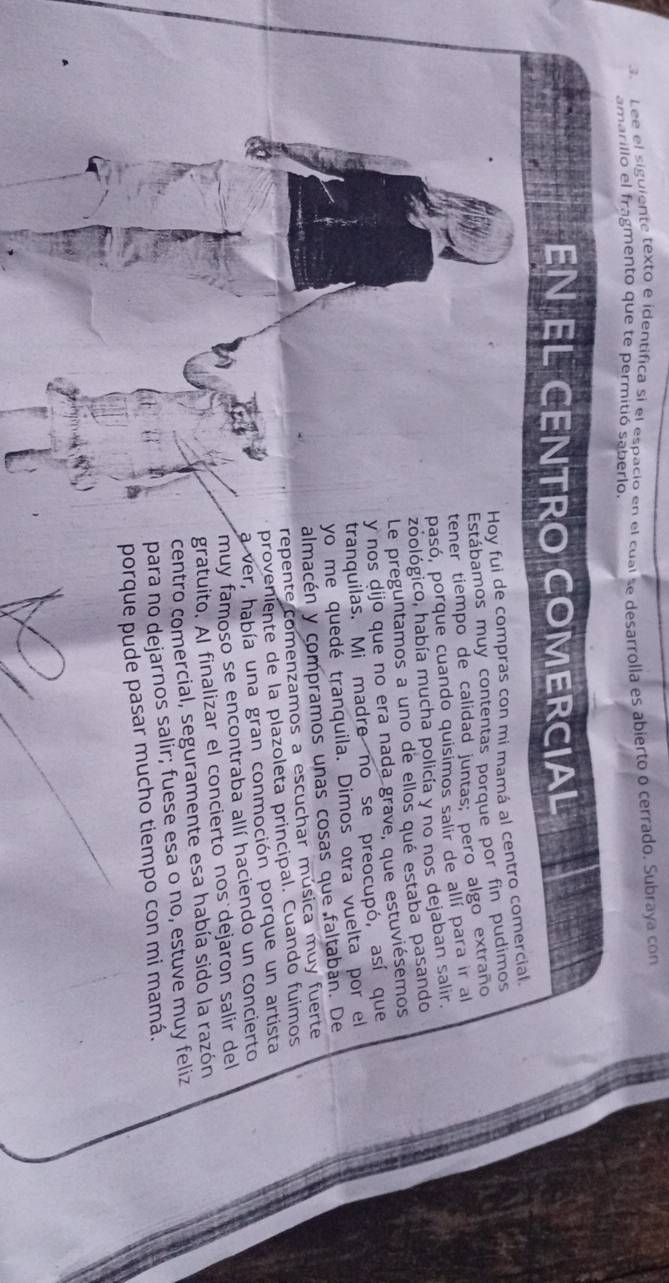 3. Lee el siguiente texto e identifica si el espacio en el cual se desarrolla es abierto o cerrado. Subraya con
amarillo el fragmento que te permitió saberlo.
EN EL CENTRO COMERCIAL
Hoy fui de compras con mi mamá al centro comercial.
Estábamos muy contentas porque por fin pudimos
tener tiempo de calidad juntas; pero algo extraño
pasó, porque cuando quisimos salir de allí para ir al
zoológico, había mucha policía y no nos dejaban salir.
Le preguntamos a uno de ellos qué estaba pasando
y nos dijo que no era nada grave, que estuviésemos
tranquilas. Mi madre no se preocupó, así que
yo me quedé tranquila. Dimos otra vuelta por el
almacén y compramos unas cosas que faltaban. De
repente comenzamos a escuchar música muy fuerte
proveniente de la plazoleta principal. Cuando fuimos
a ver, había una gran conmoción porque un artista
muy famoso se encontraba allí haciendo un concierto
gratuito. Al finalizar el concierto nos dejaron salir del
centro comercial, seguramente esa había sido la razón
para no dejarnos salir; fuese esa o no, estuve muy feliz
porque pude pasar mucho tiempo con mi mamá.